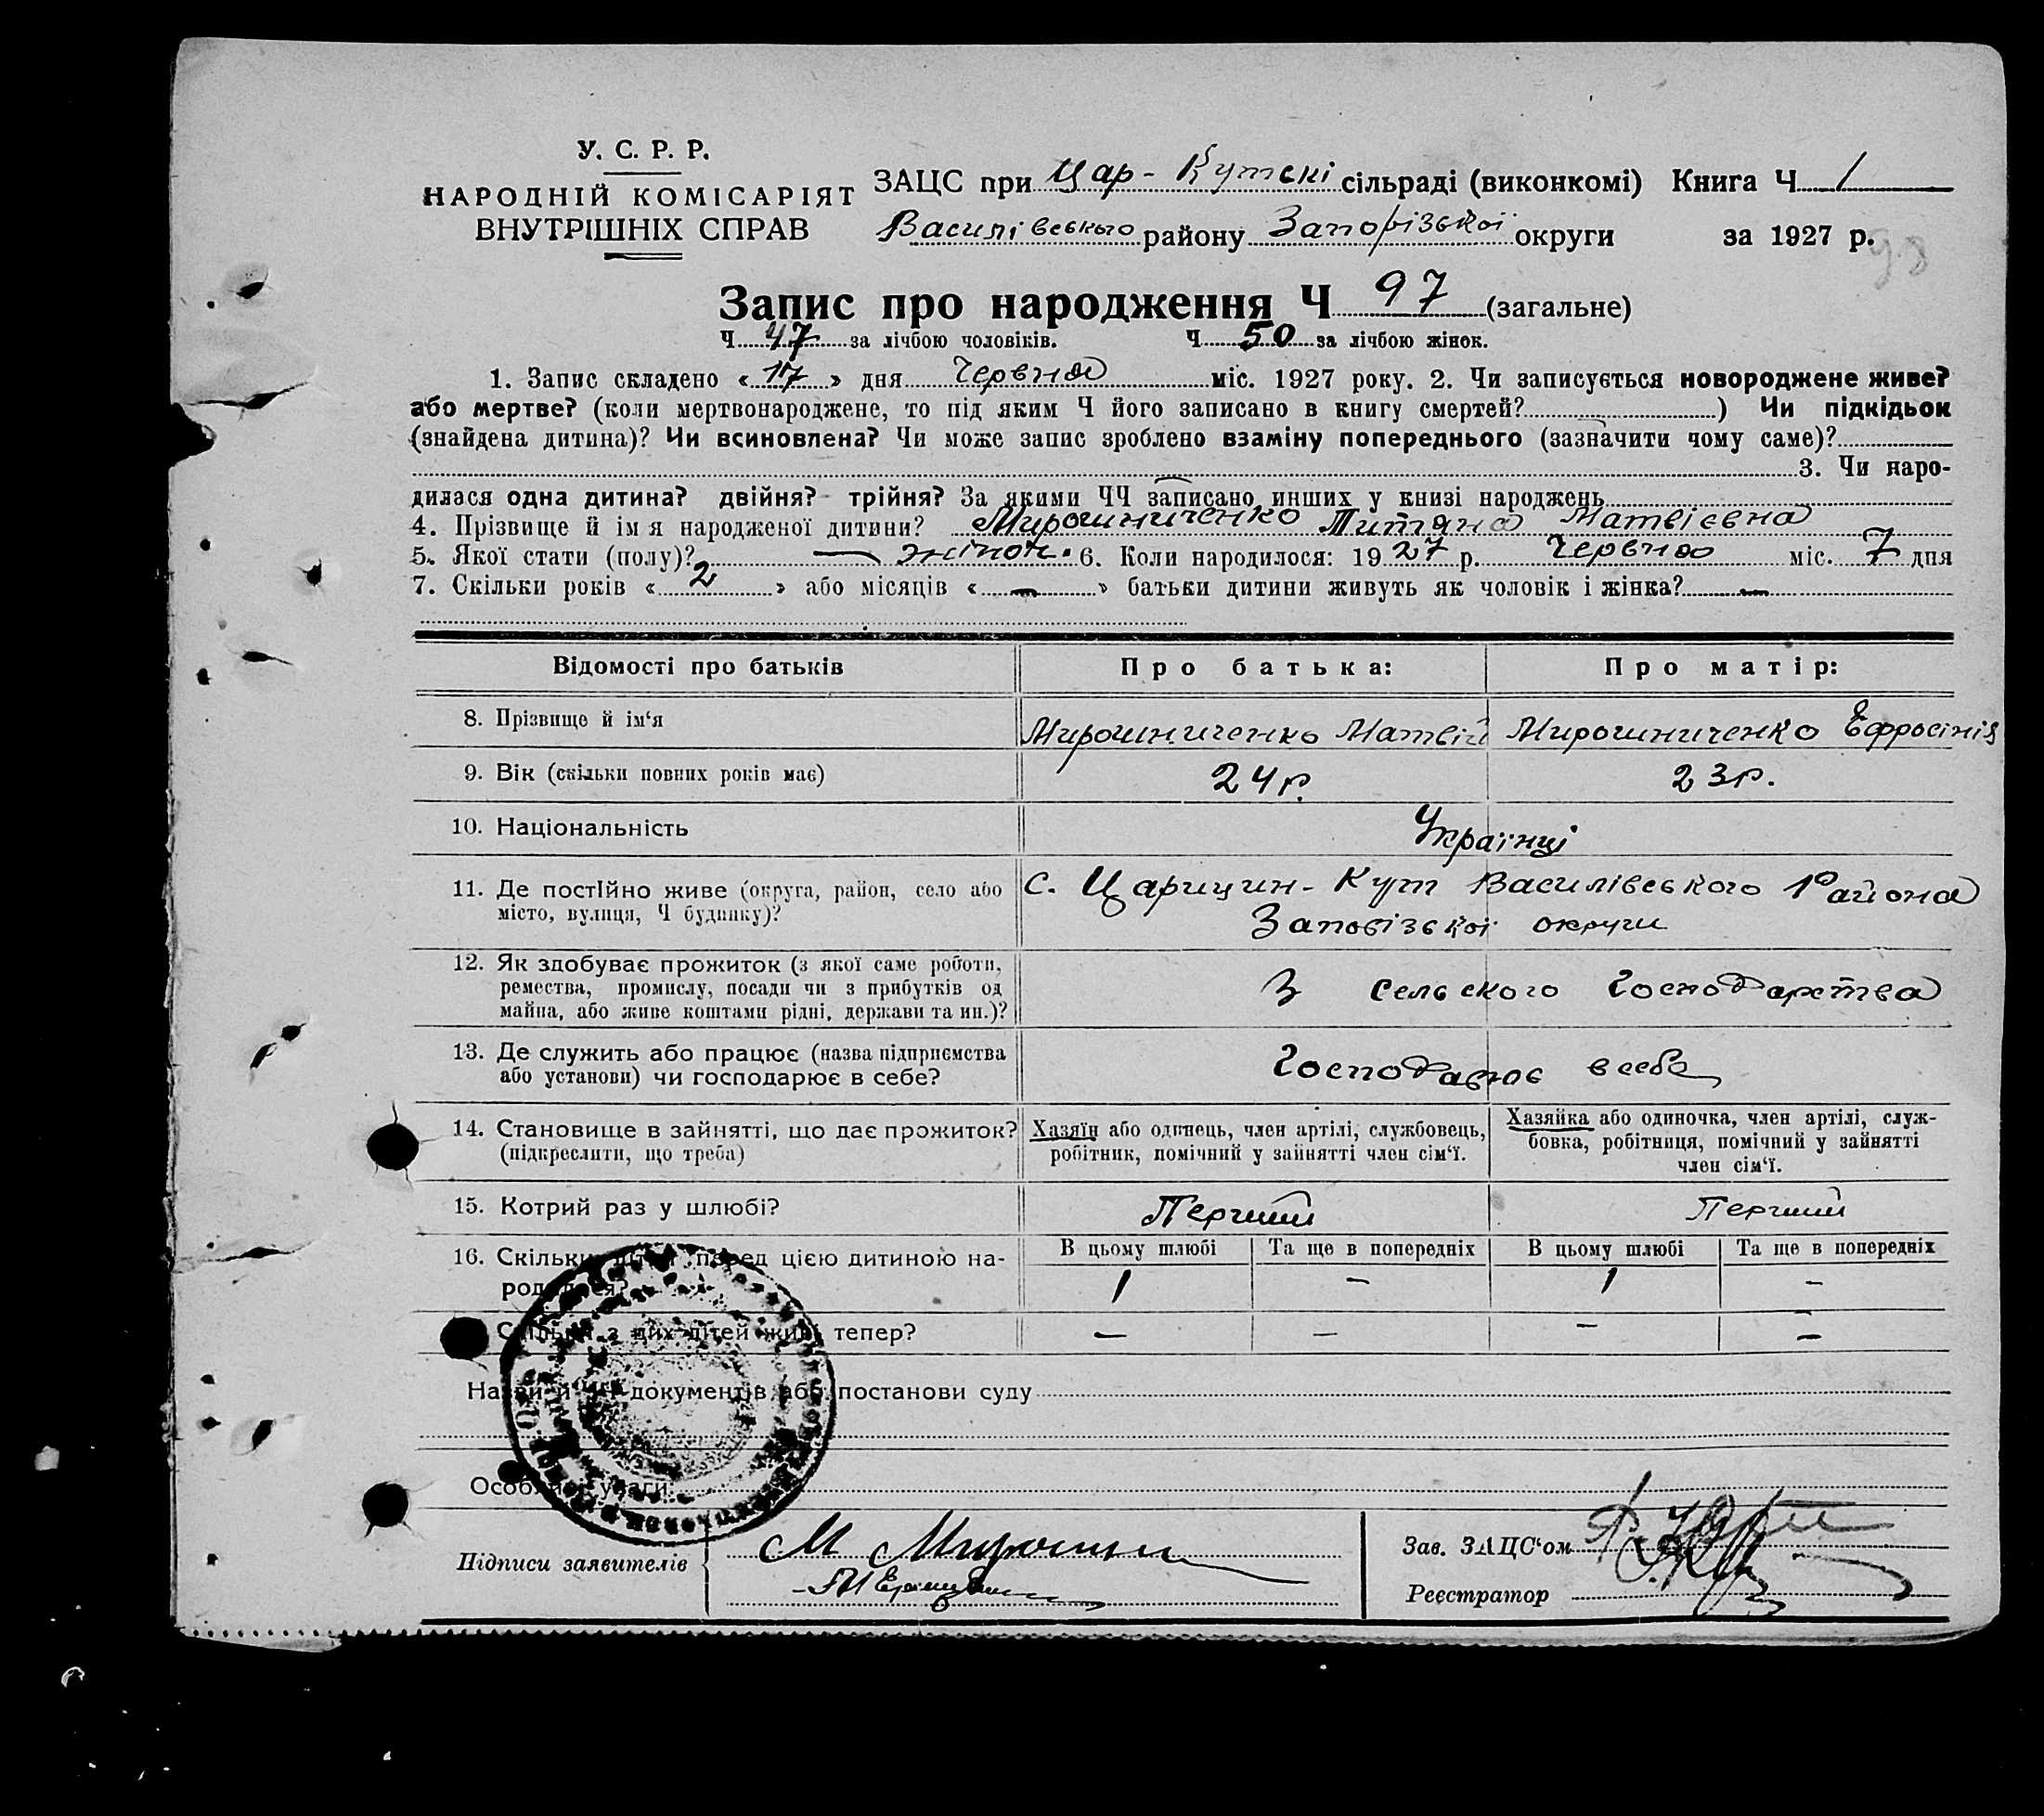 У. С. Р. Р.
НАРОДНІЙ КОМІСАРІЯТ
ВНУТРІШНІХ СПРАВ
ЗАЦС при Цар-Кутскі сільраді (виконкомі) Книга Ч 1
Василівського району Запорізької округи за 1927 р.
98
Запис про народження Ч 97 (загальне)
Ч 47 за лічбою чоловіків. Ч 50 за лічбою жінок.
1. Запис складено «17» дня Червня міс. 1927 року. 2. Чи записується новороджене живе?
або мертве? (коли мертвонароджене, то під яким Ч його записано в книгу смертей? ) Чи підкідьок
(знайдена дитина)? Чи всиновлена? Чи може запис зроблено взаміну попереднього (зазначити чому саме)?
3. Чи наро-
дилася одна дитина? двійня? трійня? За якими ЧЧ записано инших у книзі народжень
4. Прізвище й імя народженої дитини? Мирошниченко Титяна Матвієвна
5. Якої стати (полу)? — жіноч. 6. Коли народилося: 1927 р. Червня міс. 7 дня
7. Скільки років «2» або місяців «—» батьки дитини живуть як чоловік і жінка? —
Відомості про батьків Про батька: Про матір:
8. Прізвище й ім‘я Мирошниченко Матвій Мирошниченко Ефросінія
9. Вік (скільки повних років має) 24 р. 23 р.
10. Національність Українці
11. Де постійно живе (округа, район, село або с. Царицин-Кут Василівського Района
місто, вулиця, Ч будинку)? Запорізької округи
12. Як здобуває прожиток (з якої саме роботи,
ремества, промислу, посади чи з прибутків од З сельского Господарства
майна, або живе коштами рідні, держави та ин.)?
13. Де служить або працює (назва підприємства
або установи) чи господарює в себе? Господарює всебе
14. Становище в зайнятті, що дає прожиток? Хазяїн або одинець, член артілі, службовець, Хазяйка або одиночка, член артілі, служ-
(підкреслити, що треба) робітник, помічний у зайнятті член сім‘ї. бовка, робітниця, помічний у зайнятті
член сім‘ї.
15. Котрий раз у шлюбі? Перший Перший
16. Скільки дітей перед цією дитиною на- В цьому шлюбі Та ще в попередніх В цьому шлюбі Та ще в попередніх
родилося? 1 — 1 —
Скільки з цих дітей живі тепер? — — — —
Назви й ЧЧ документів або постанови суду
Особливі уваги
Підписи заявителів М Мирошни
Зав. ЗАЦС‘ом
Реєстратор